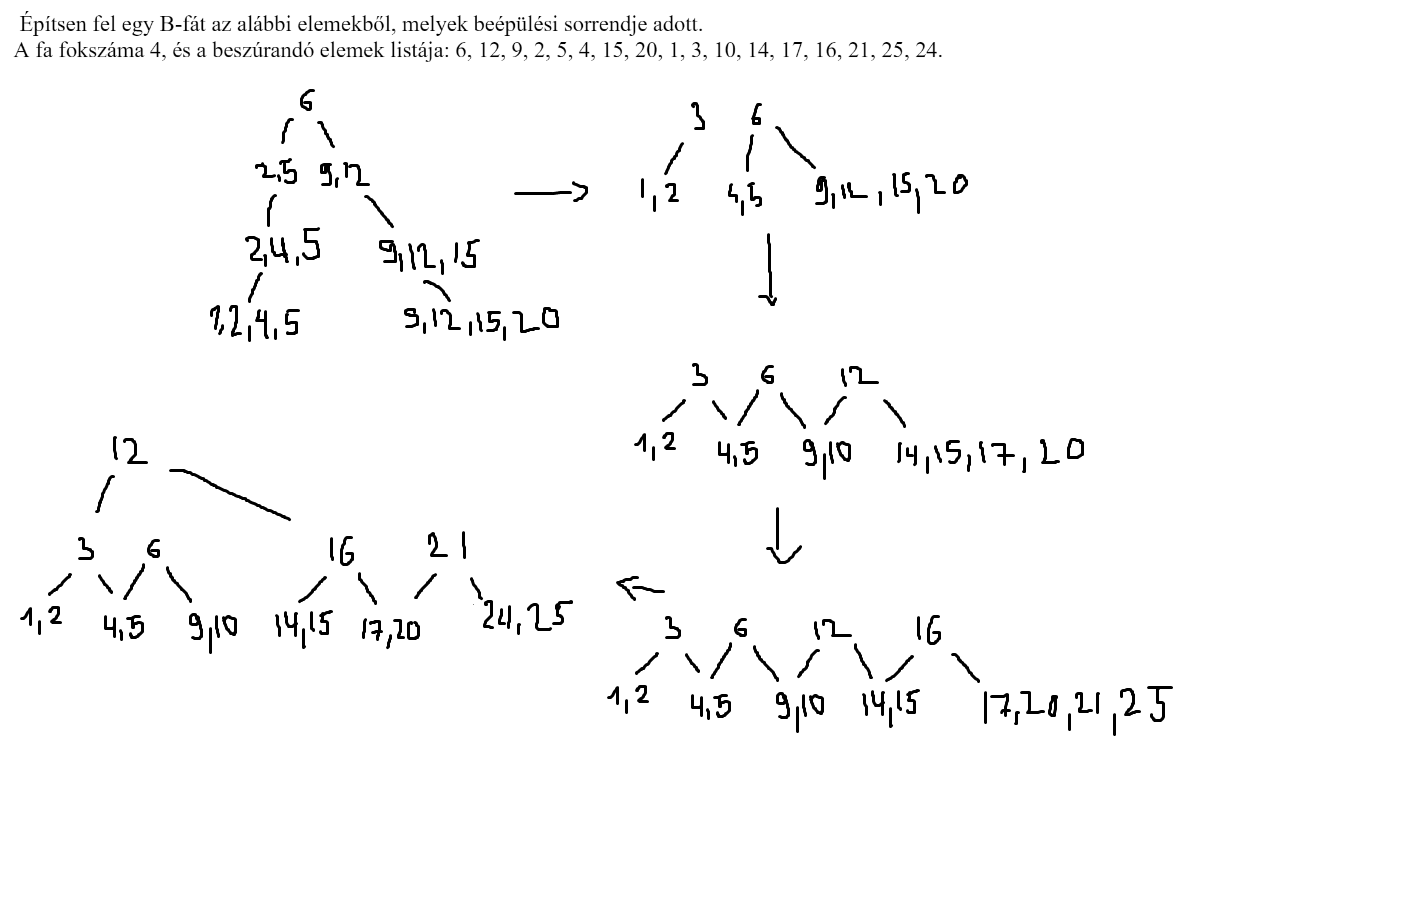 Építsen fel egy B-fát az alábbi elemekből, melyek beépülési sorrendje adott.
A fa fokszáma 4, és a beszúrandó elemek listája: 6, 12, 9, 2, 5, 4, 15, 20, 1, 3, 10, 14, 17, 16, 21, 25, 24.
6
2,5 9,12
2,4,5 9,12,15
1,2,4,5 9,12,15,20
3 6
1,2 4,5 9,12,15,20
3 6 12
1,2 4,5 9,10 14,15,17,20
3 6 12 16
1,2 4,5 9,10 14,15 17,20,21,25
12
3 6 16 21
1,2 4,5 9,10 14,15 17,20 24,25